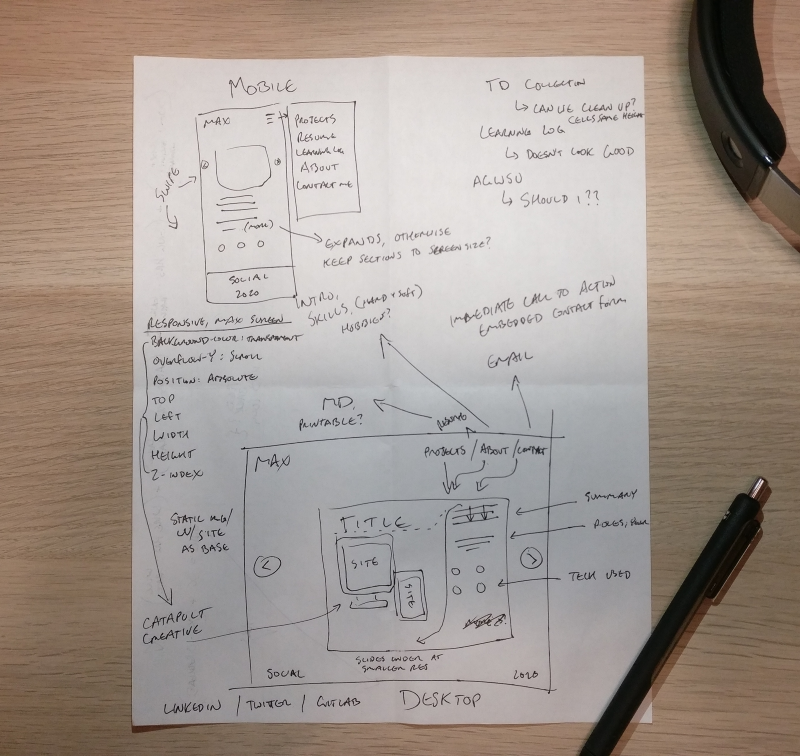 MOBILE
MAX
PROJECTS
RESUME
LEARNING LOG
ABOUT
CONTACT ME
SWIPE
(MORE)
EXPANDS, OTHERWISE
KEEP SECTIONS TO SCREEN SIZE?
SOCIAL
2020
TD COLLECTION
CAN WE CLEAN UP?
CELLS SAME HEIGHT
LEARNING LOG
DOESN'T LOOK GOOD
AGWSU
SHOULD I??
INTRO,
SKILLS, (HARD + SOFT)
HOBBIES?
IMMEDIATE CALL TO ACTION
EMBEDDED CONTACT FORM
EMAIL
RESPONSIVE, MAX SCREEN
BACKGROUND-COLOR: TRANSPARENT
OVERFLOW-Y: SCROLL
POSITION: ABSOLUTE
TOP
LEFT
WIDTH
HEIGHT
Z-INDEX
MD,
PRINTABLE?
RESUME
PROJECTS / ABOUT / CONTACT
MAX
STATIC IMG/
W/ SITE
AS BASE
TITLE
SITE
SITE
SUMMARY
ROLES,
TECH USED
CATAPULT
CREATIVE
SLIDES UNDER AT
SMALLER RES
SOCIAL
2020
LINKEDIN / TWITTER / GITLAB
DESKTOP